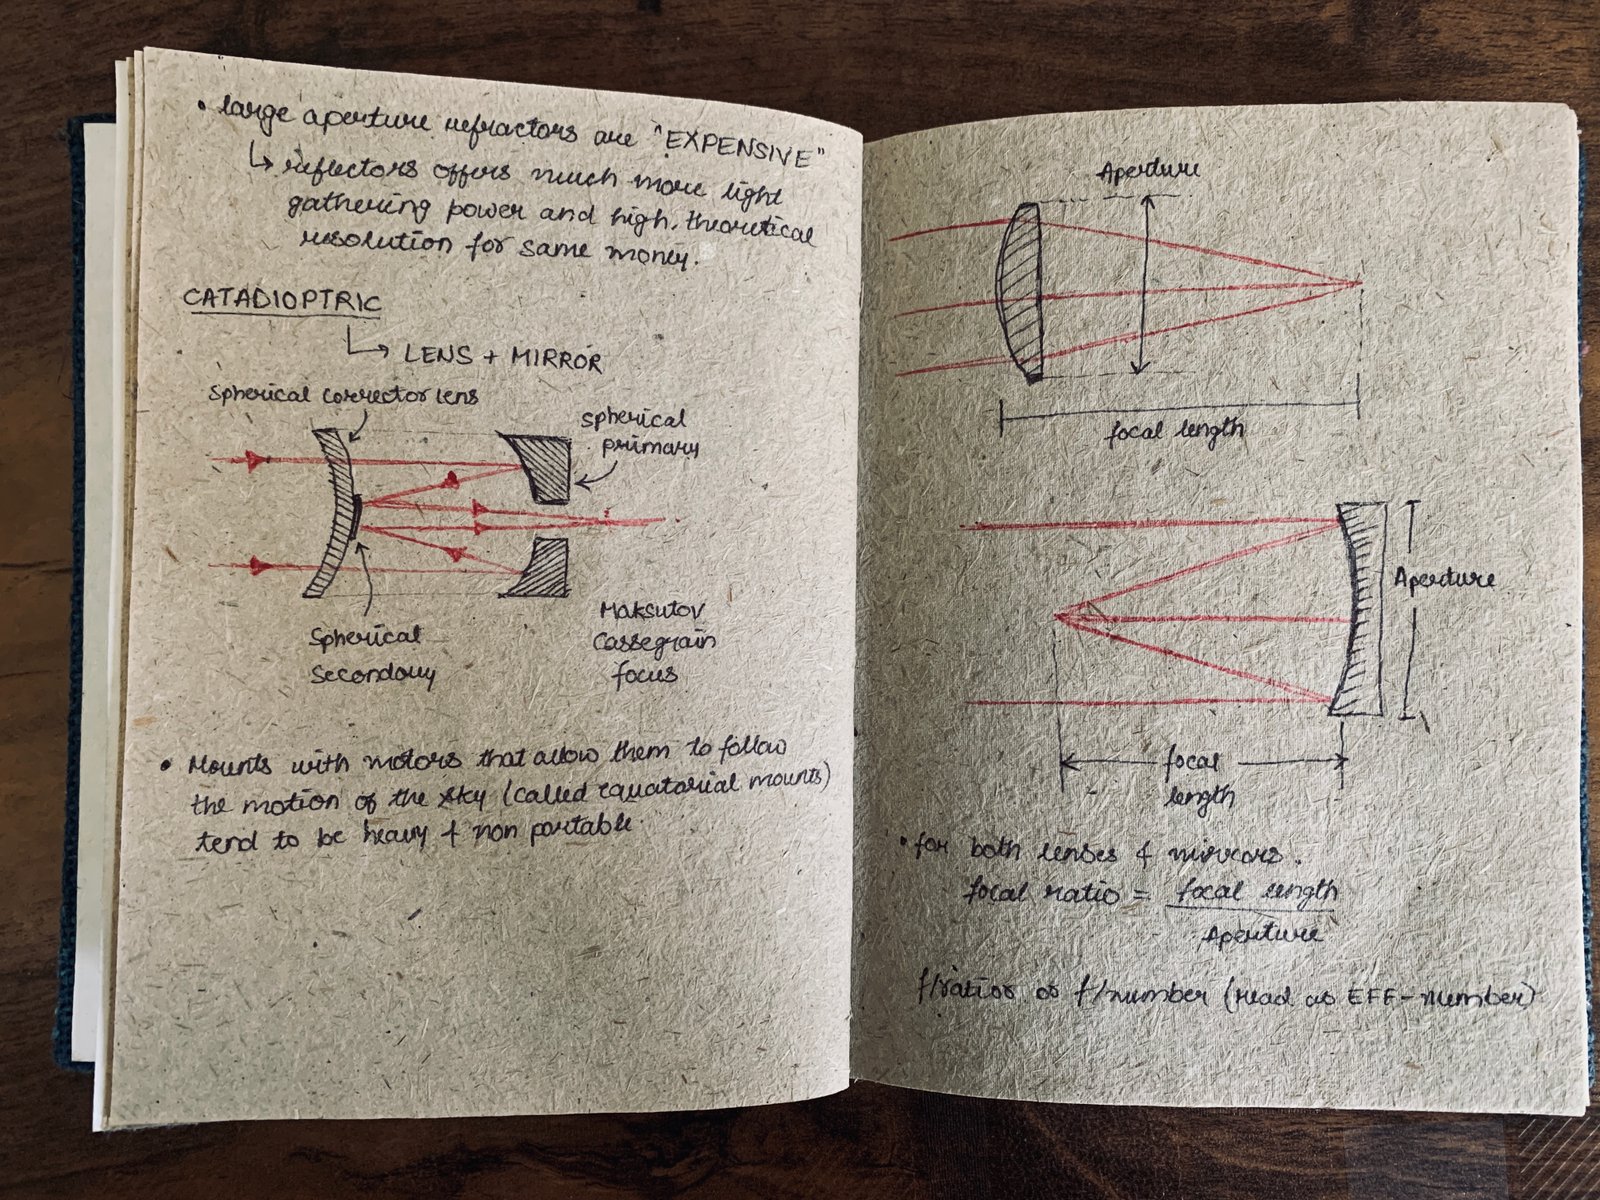 • large aperture refractors are "EXPENSIVE"
↳ reflectors offers much more light
gathering power and high, theoretical
resolution for same money.
CATADIOPTRIC
↳ LENS + MIRROR
Spherical corrector lens
Spherical
primary
Spherical
Secondary
Maksutov
Cassegrain
focus
• Mounts with motors that allow them to follow
the motion of the sky (called equatorial mounts)
tend to be heavy & non portable.
Aperture
focal length
Aperture
focal
length
• for both lenses & mirrors.
focal ratio = focal length
Aperture
f/ratios or f/number (read as EFF-number)